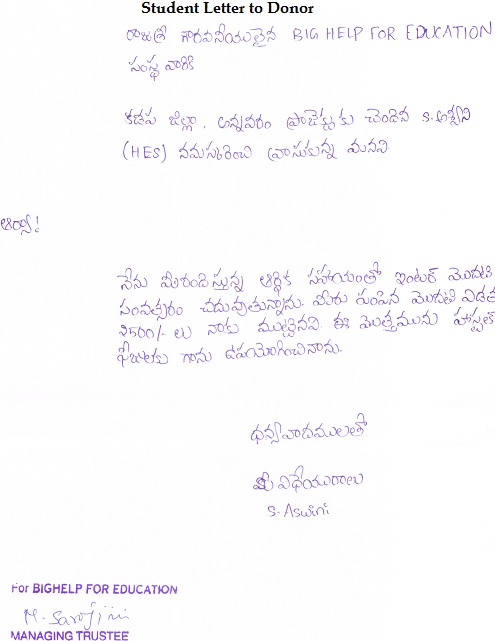 Student Letter to Donor
గౌరవనీయులైన BIG HELP FOR EDUCATION
సంస్థ వారికి
కడప జిల్లా, అన్నవరం ప్రాజెక్టుకు చెందిన S. అశ్విని
(HES) నమస్కరించి వ్రాసుకున్న మనవి
ఆర్యా!
నేను మీరందిస్తున్న ఆర్థిక సహాయంతో ఇంటర్ మొదటి
సంవత్సరం చదువుతున్నాను. మీరు పంపిన మొదటి విడత
2500/- లు నాకు ముట్టినవి. ఈ మొత్తమును హాస్టల్
ఫీజులకు గాను ఉపయోగించినాను.
ధన్యవాదములతో
మీ విధేయురాలు
S. Aswini
For BIGHELP FOR EDUCATION
M. Sarojini
MANAGING TRUSTEE